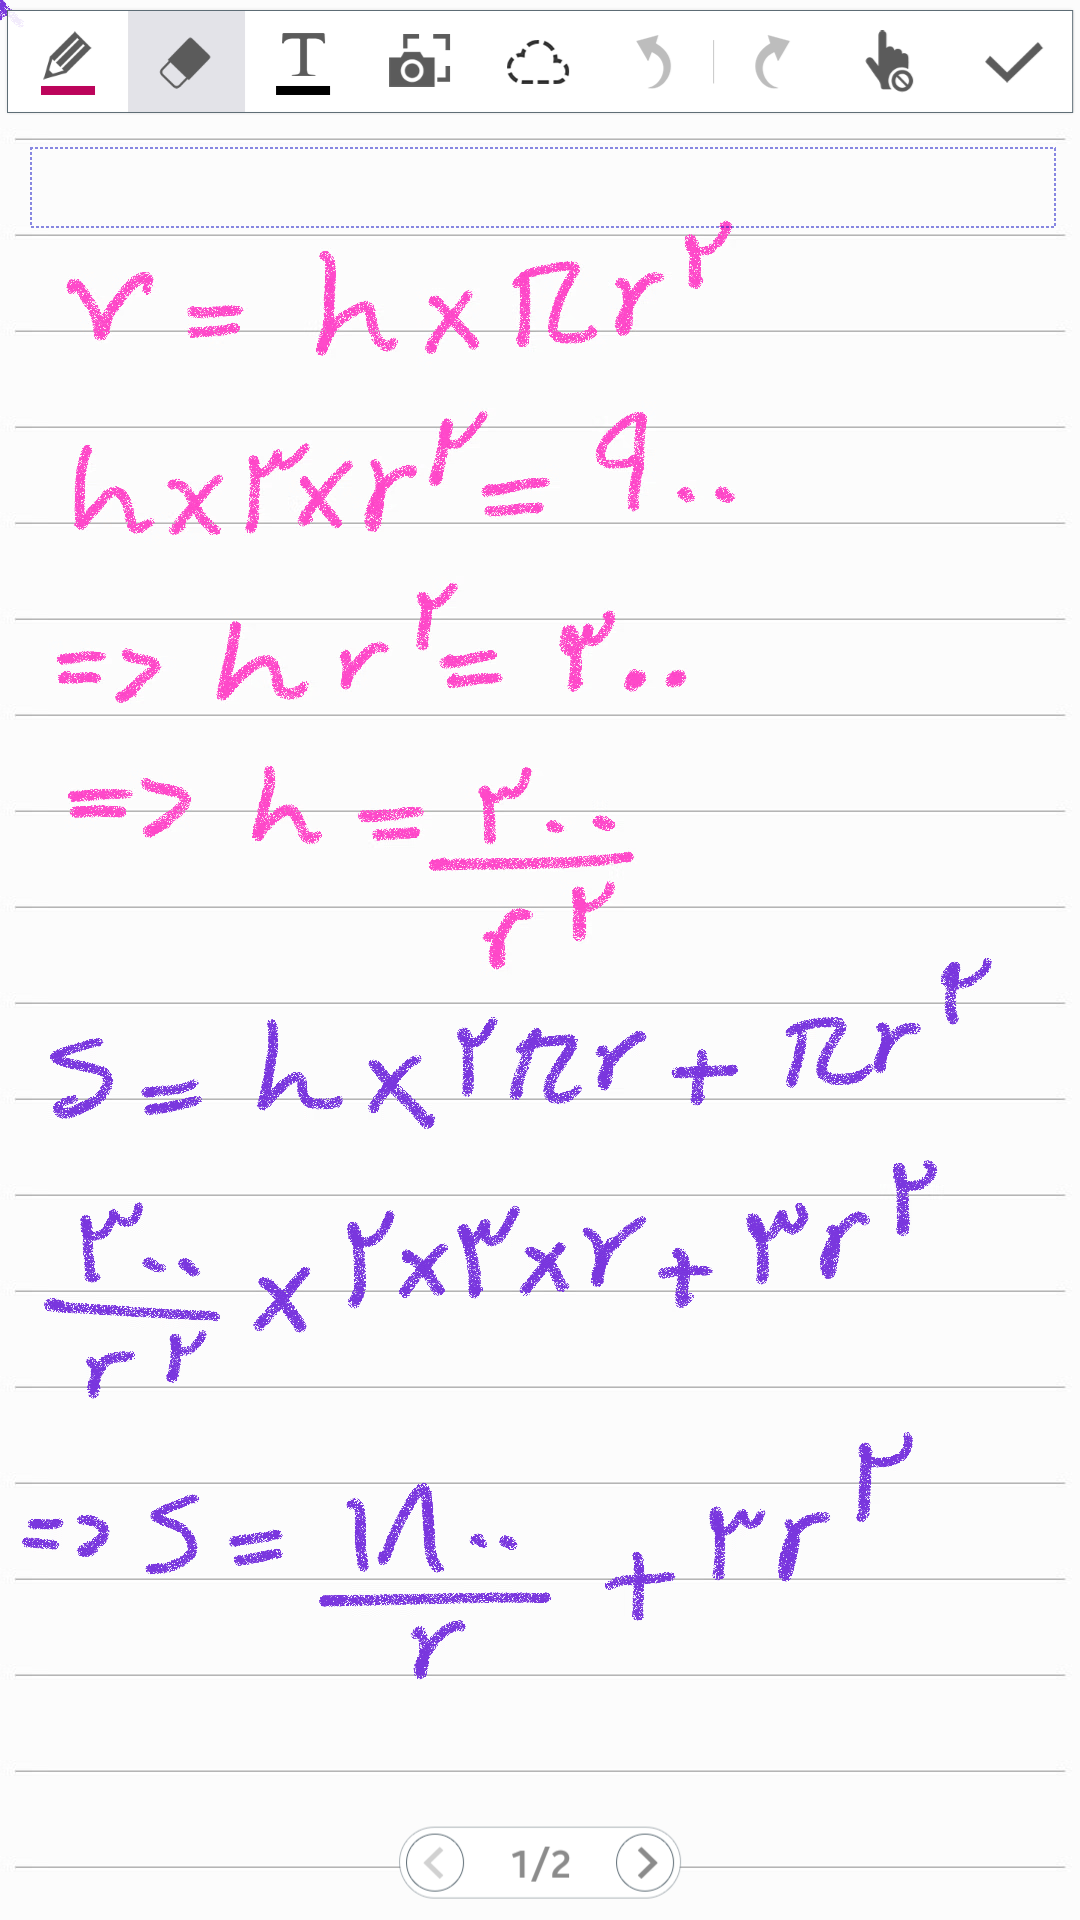 T
V = h × πr^۲
h × ۳ × r^۲ = ۹۰۰
=> h r^۲ = ۳۰۰
=> h = ۳۰۰ / r^۲
S = h × ۲πr + πr^۲
۳۰۰ / r^۲ × ۲ × ۳ × r + ۳r^۲
=> S = ۱۸۰۰ / r + ۳r^۲
1/2